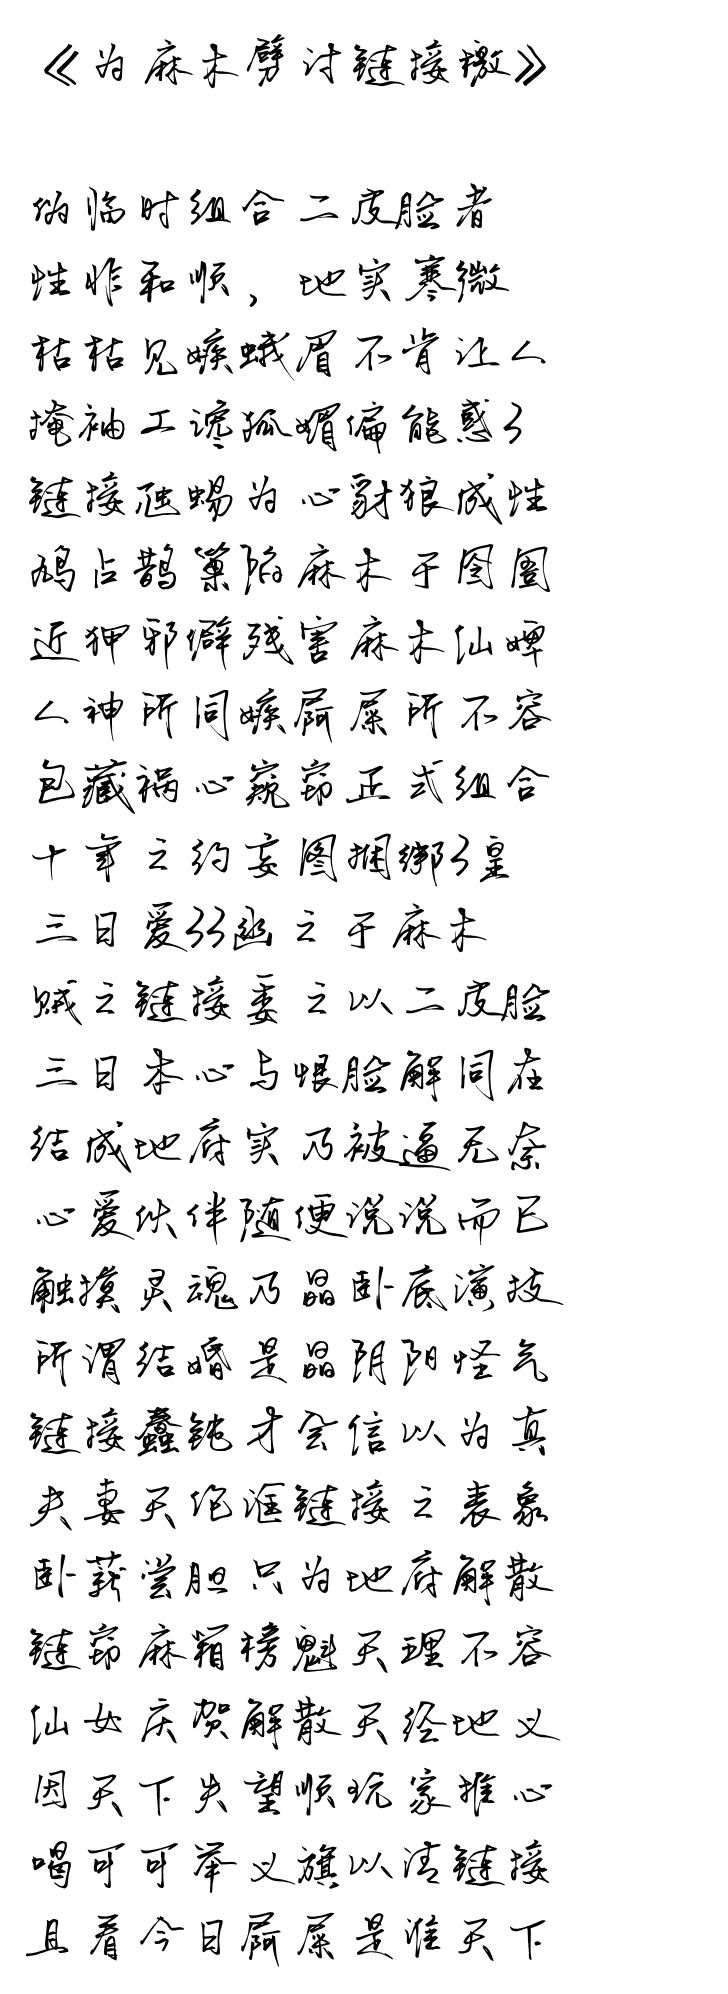 《为麻木劈讨链接檄》
伪临时组合二皮脸者
性非和顺，地实寒微
枯枯见嫉蛾眉不肯让人
掩袖工谗狐媚偏能惑3
链接虺蜴为心豺狼成性
鸠占鹊巢陷麻木于囹圄
近狎邪僻残害麻木仙婢
人神所同嫉屙屎所不容
包藏祸心窥窃正式组合
十年之约妄图捆绑3皇
三日爱33幽之于麻木
贼之链接委之以二皮脸
三日本心与恨脸解同在
结成地府实乃被逼无奈
心爱伙伴随便说说而已
触摸灵魂乃晶卧底演技
所谓结婚是晶阴阳怪气
链接蠢钝才会信以为真
夫妻天佑诓链接之表象
卧薪尝胆只为地府解散
链窃麻箱榜魁天理不容
仙女庆贺解散天经地义
因天下失望顺玩家推心
喝可可举义旗以清链接
且看今日屙屎是谁天下